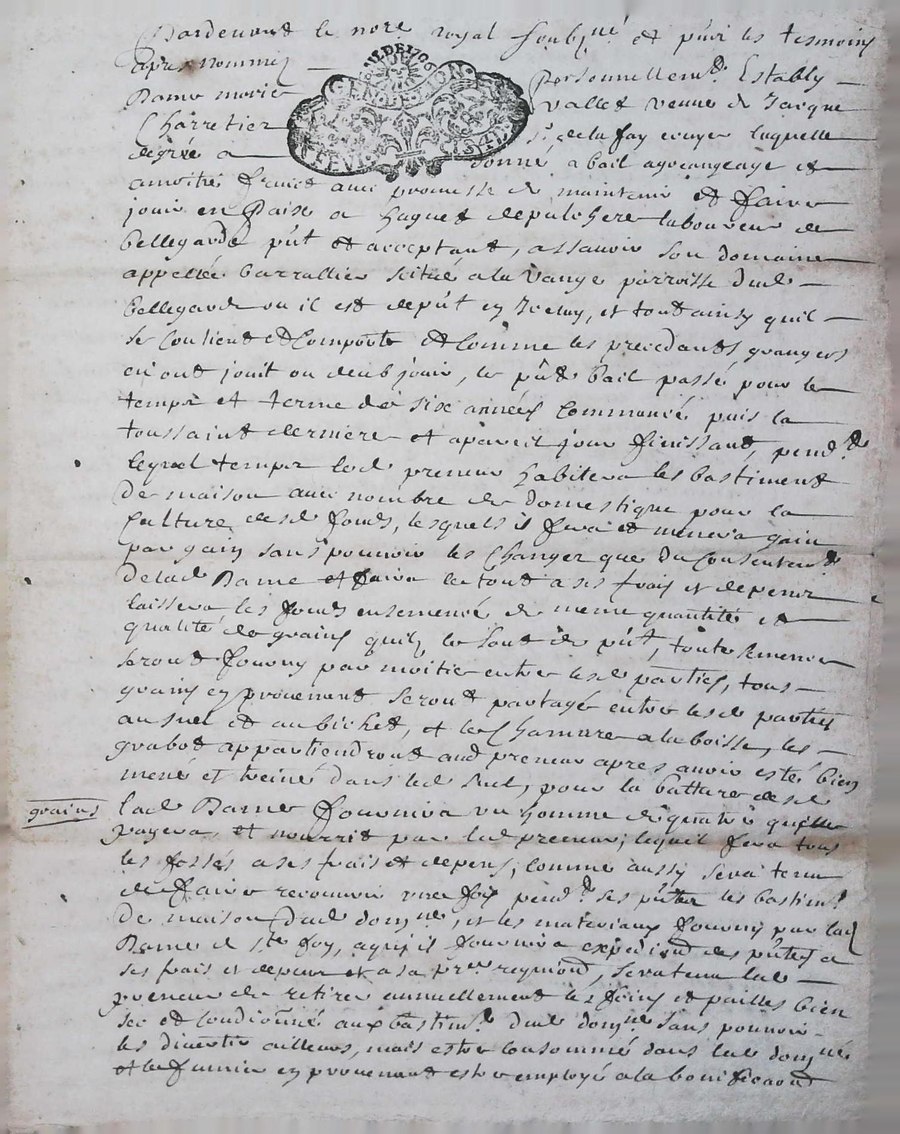 Pardevant le nore royal soubzné et pnts les tesmoins
apres nommez
GEN. DE LYON
personnellemt Estably
Dame marie
vallet veuve de Jacque
Charretier
sr de la fay ecuyer laquelle
degrée a
donné a bail a grangeage et
a moitié fruict avec promesse de maintenir et faire
jouir en Paise a huguet depulchere laboureur de
bellegarde pnt et acceptant, assavoir son domaine
appellée barrallier scitué a la Vange parroisse dud
bellegarde ou il est deput en Iceluy, et tout ainsy quil
se Contient et Comporte et Comme les precedants grangers
en ont jouit ou deub jouir, le pnt bail passé pour le
temps et terme de six années Commancé puis la
toussaint derniere et a pareil jour finissant, pendt
lequel temps led preneur habitera les bastiment
De maison avec nombre de domestique pour la
Culture desd fonds, lesquels il fera et menera gain
par gain sans pouvoir les Changer que du Consentemt
de lad Dame et faire le tout a ses frais et depens
laissera les fonds ensemencé de meme quantité et
qualité de grains quilz le sont de pnt, toute semence
seront fourny par moitié entre lesd parties, tous
grains en provenant seront partagé entre lesd parties
au suel et au bichet, et les Chanvre a la boisse, les
grabot appartiendront aud preneur apres avoir esté bien
mené et treiné dans led suel, pour la batture desd
grains
lad Dame fournira un homme de quatre quelle
payera, et nourrit par led preneur; lequel fera tous
les fossés a ses frais et depens; Comme aussy sera tenu
de faire recouvrir une fois pendt ses pntes les bastimt
De maison dud domne, et les materiaux fourny par lad
Dame de ste foy, a qui il fournira expedion des pntes a
ses frais et depens et a sa pre reqon, sera tenu led
preneur de retirer annuellement les foins et pailles bien
sec et Condionné aux bastimt dud domne sans pouvoir
les divertir ailleurs, mais estre Consommé dans led domne
et le fumier en provenant estre employé a la bonificaon